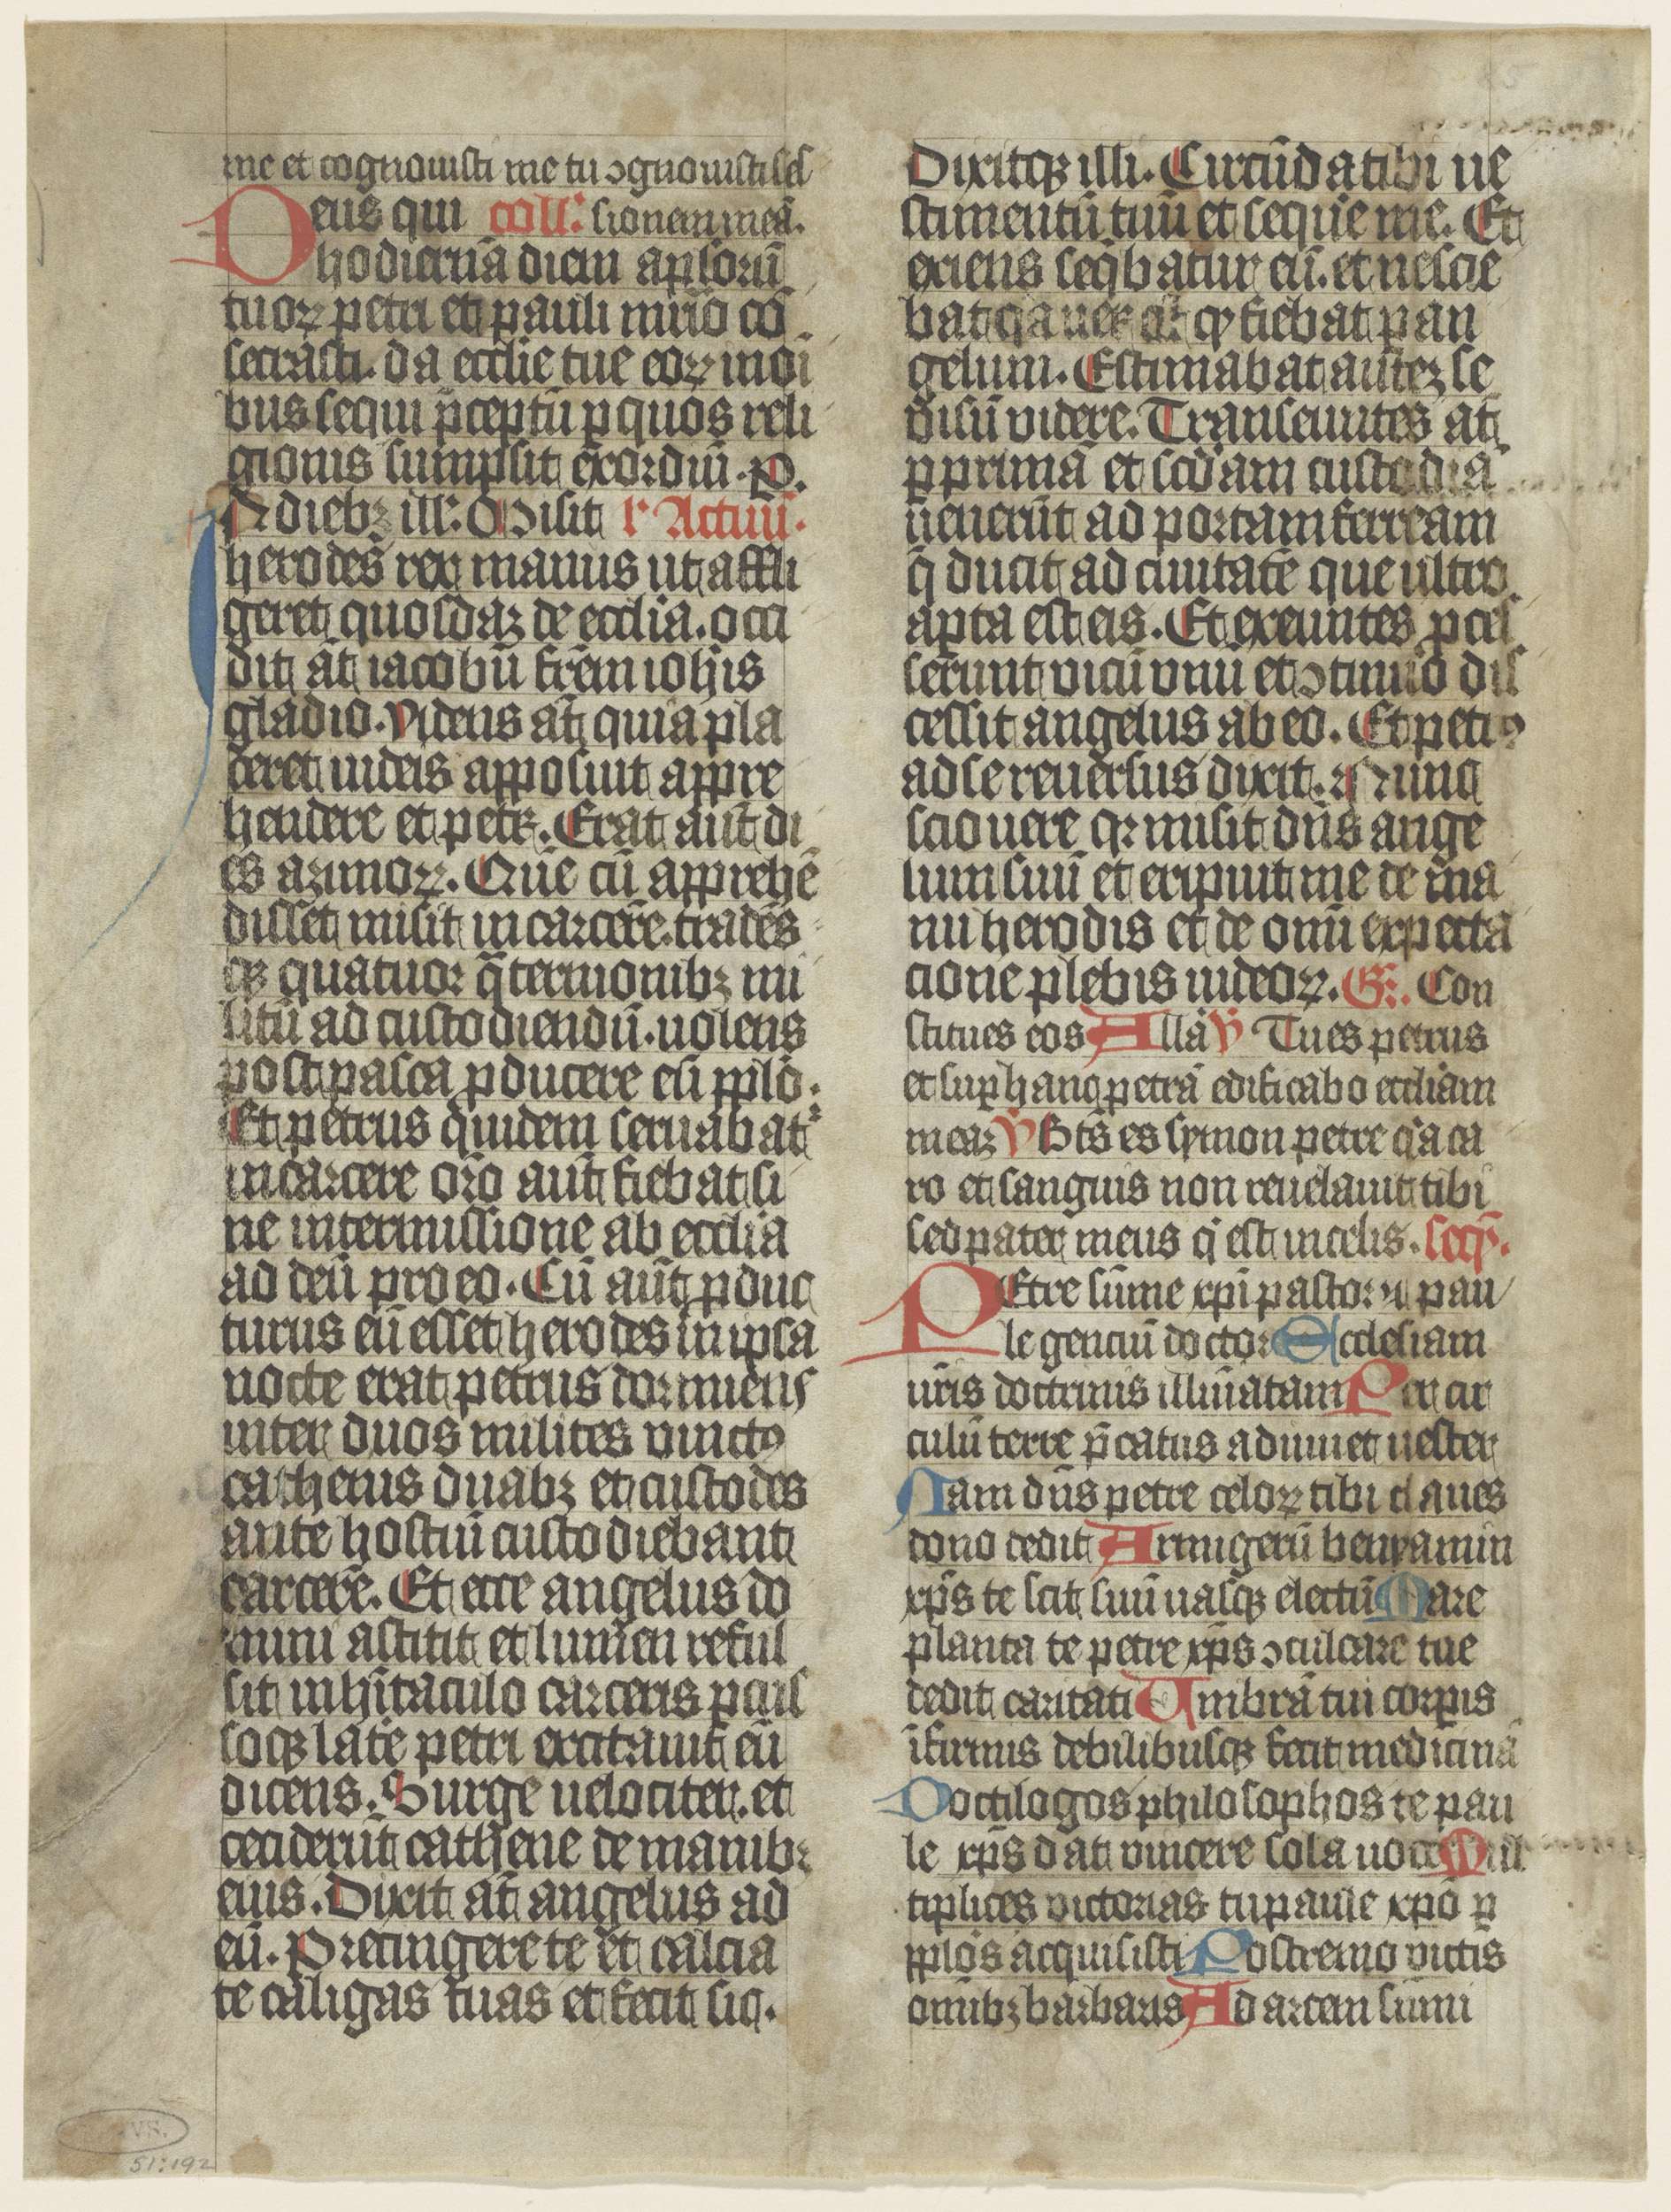 me et cognouisti me tu ↄgnouisti ses
Deus qui coll': sionem meā.
hodiernā diem apl̄orū
tuoꝝ petri et pauli mr̄io cō
secrasti. da eccl̄ie tue eoꝝ in oī
bus sequi p̄ceptū ꝑ quos reli
gionis sumpsit exordiū. ꝑ.
In diebꝫ ill': Misit l' Actuū.
herodes rex manus ut affli
geret quosdaꝫ de eccl̄ia. occi
dit āt iacobū fr̄em ioh̄is
gladio. Videns āt quia pla
ceret iudeis apposuit appre
hendere et petꝝ. Erat aūt di
es azimoꝝ. Quē cū apprehē
disset misit in carcerē. tradēs
qꝫ quatuor q̄ternionibꝫ mi
litū ad custodiendū. uolens
post pasca ꝓducere eū ppl̄o.
Et petrus quidem seruabat᷑
in carcere or̄o aūt fiebat si
ne intermissione ab eccl̄ia
ad deū pro eo. Cū aūt ꝓduc
turus eū esset herodes in ipsa
nocte erat petrus dormiens
inter duos milites vinctꝰ
cathenis duabꝫ et custodes
ante hostiū custodiebant
carcerē. Et ecce angelus do
mini astitit et lumen reful
sit in hītaculo carceris ꝑcus
soqꝫ late petri excitauit eū
dicens. Surge uelociter. et
ceciderūt cathene de manibꝫ
eius. Dixit āt angelus ad
eū. Precingere te et calcia
te caligas tuas et fecit sic.
Dixitqꝫ illi. Circūda tibi ue
stimentū tuū et sequere me. Et
exiens seq̄batur eū. et nescie
bat qͥa uerū qͩ fiebat ꝑ an
gelum. Estimabat auteꝫ se
visū videre. Transeuntes āt
ꝑ primā et scd̄am custodiā
uenerūt ad portam ferream
q̄ ducit ad ciuitatē que ultro
apta est eis. Et exeuntes ꝓces
serunt vicū vnū et ↄtinuo dis
cessit angelus ab eo. Et petrꝰ
ad se reuersus dixit. Nunc
scio uere qꝛ misit dn̄s ange
lum suū et eripuit me de ma
nu herodis et de omī expecta
cione plebis iudeoꝝ. G:. Con
stitues eos Allā V̄ Tu es petrus
et suꝑ hanc petrā edificabo eccl̄iam
meaꝫ V̄ Bt̄s es symon petre qͥa ca
ro et sanguis non reuelauit tibi
sed pater meus qͥ est in celis. seqͣ.
PEtre sūme xp̄i pastor et pau
le genciū doctor Ecclesiam
ur̄is doctrinis illūinatam Per cir
culū terre p̄catus adiuuet uester
Nam dn̄s petre celoꝝ tibi claues
dono dedit Armigerū benyamin
xp̄s te scit suū uasqꝫ electū Mare
planta te petre xp̄s ↄculcare tue
dedit caritati Umbrā tui corpis
īfirmis debilibusqꝫ fecit medicinā
Doctilogos philosophos te pau
le xp̄s dat vincere sola uoce Mul
tiplices victorias tu paule xp̄o ꝑ
ppl̄os acquisisti Postremo victis
omībꝫ barbaris Ad arcem sūmi
51:192